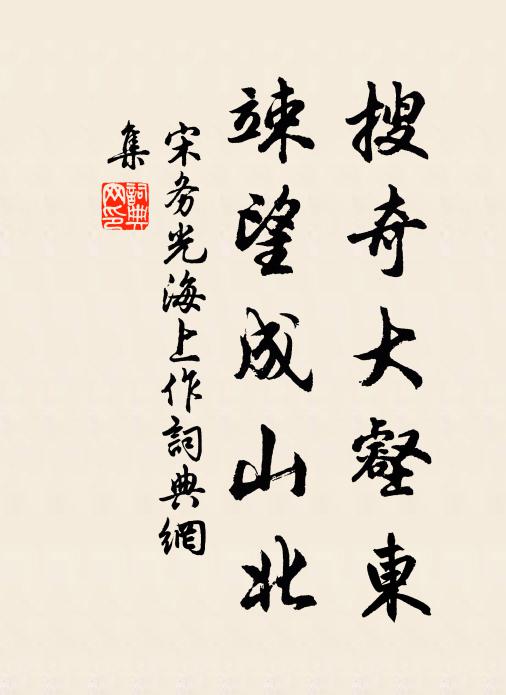 搜奇大壑東
竦望成山北
宋务光海上作詞典網
集
詞典网印